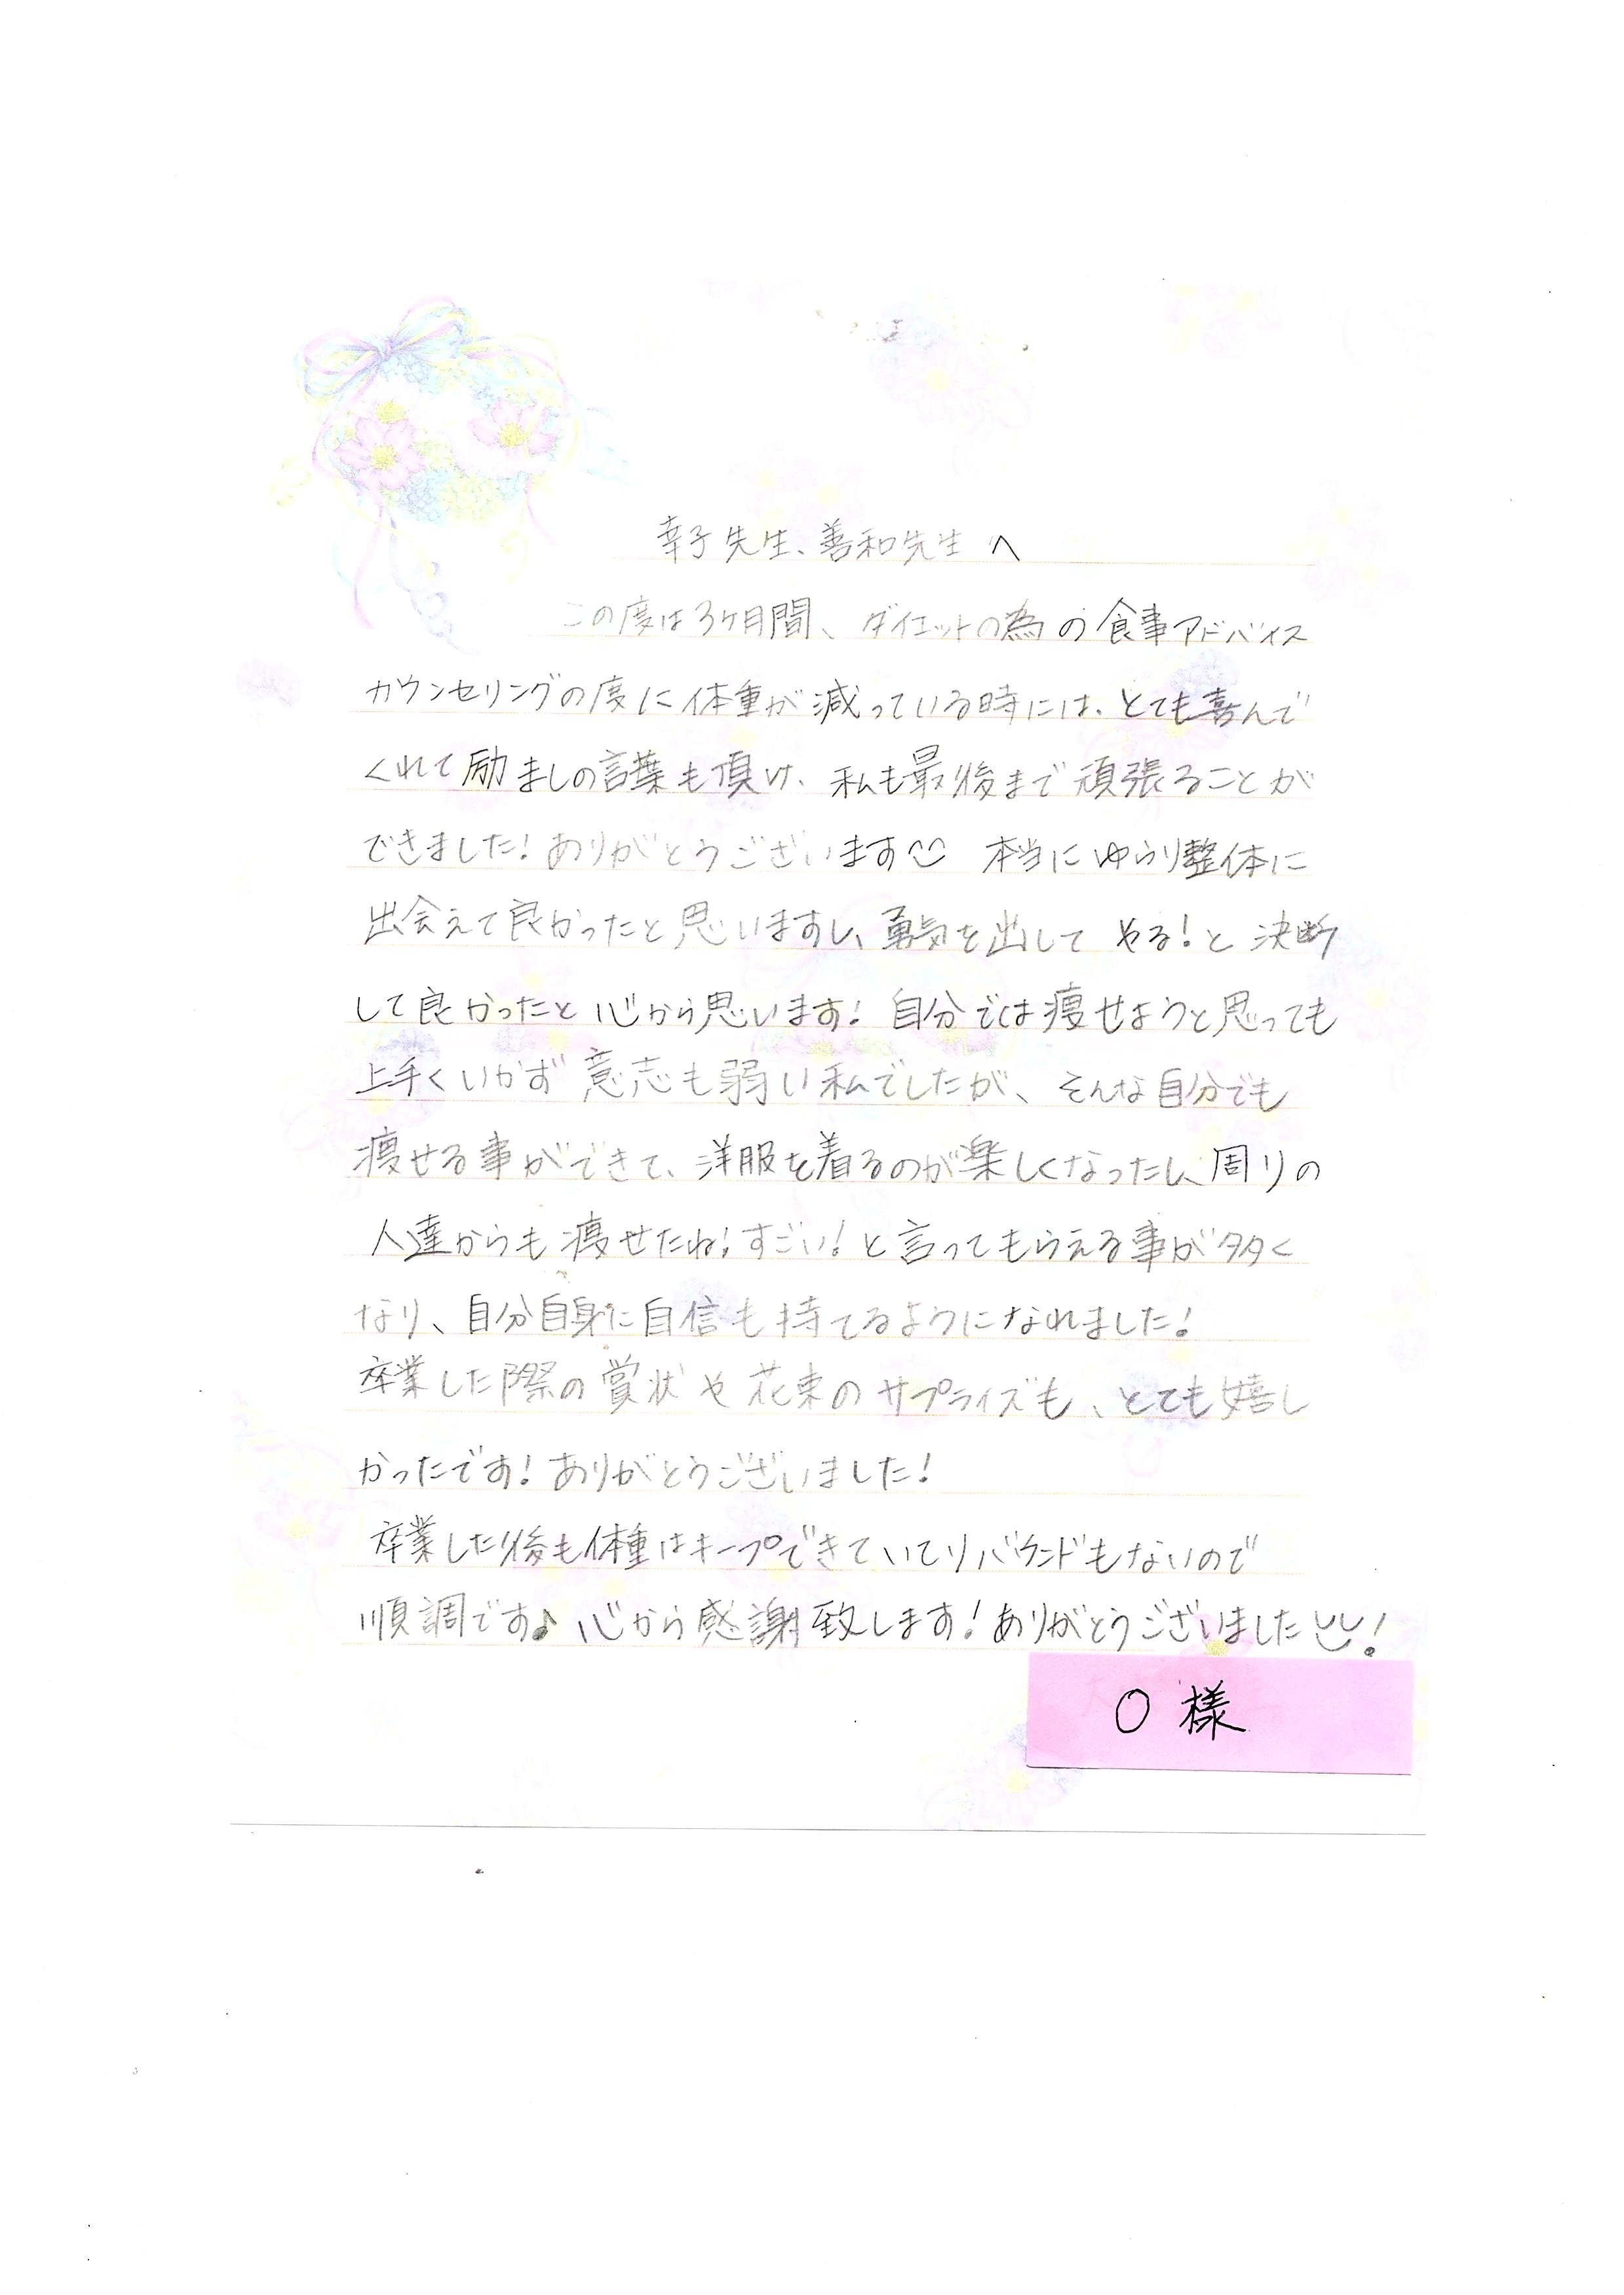 幸子先生、善和先生へ
この度は3ヶ月間、ダイエットの為の食事アドバイス
カウンセリングの度に体重が減っている時には、とても喜んで
くれて励ましの言葉も頂け、私も最後まで頑張ることが
できました!ありがとうございます 本当にゆらり整体に
出会えて良かったと思いますし、勇気を出してやる!と決断
して良かったと心から思います!自分では痩せようと思っても
上手くいかず意志も弱い私でしたが、そんな自分でも
痩せる事ができて、洋服を着るのが楽しくなったし、周りの
人達からも痩せたね!すごい!と言ってもらえる事が多く
なり、自分自身に自信も持てるようになれました!
卒業した際の賞状や花束のサプライズも、とても嬉し
かったです!ありがとうございました!
卒業した後も体重はキープできていてリバウンドもないので
順調です♪心から感謝致します!ありがとうございました!
○様